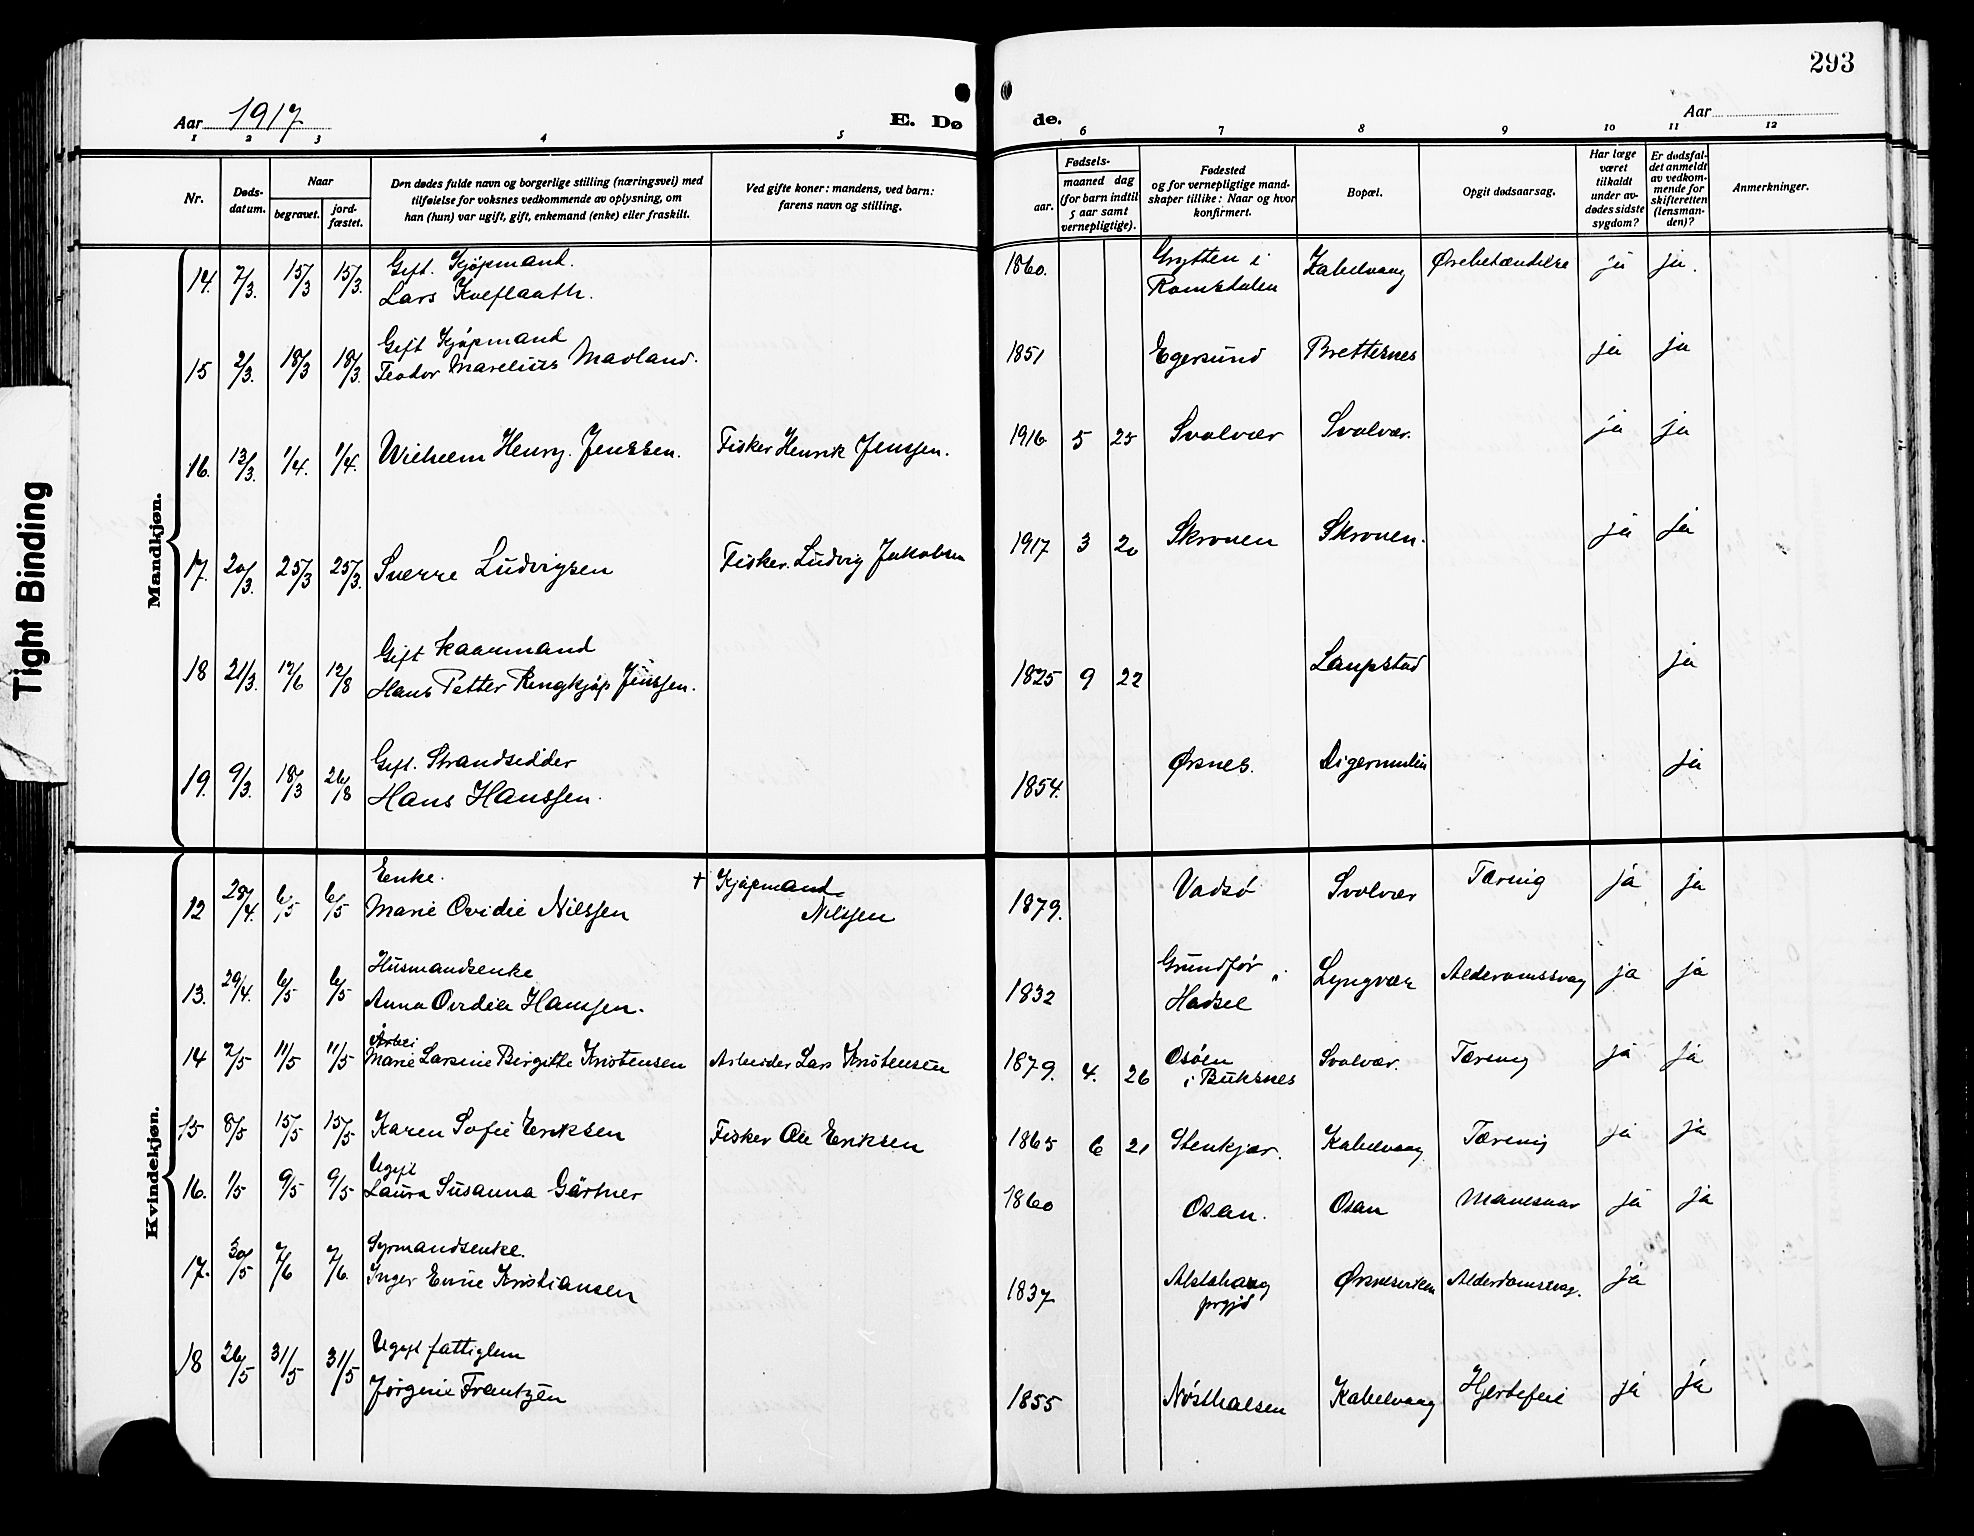 293
Aar 1917
E. Dø
de.
Aar
1 2 3 4 5
6 7 8 9 10 11 12
Nr.
Døds-
datum.
Naar
begravet.
jord-
fæstet.
Den dødes fulde navn og borgerlige stilling (næringsvei) med
tilføielse for voksnes vedkommende av oplysning, om
han (hun) var ugift, gift, enkemand (enke) eller fraskilt.
Ved gifte koner: mandens, ved barn:
farens navn og stilling.
Fødsels-
aar.
maaned dag
(for barn indtil
5 aar samt
vernepligtige).
Fødested
og for vernepligtige mand-
skaper tillike: Naar og hvor
konfirmert.
Bopæl.
Opgit dødsaarsag.
Har læge
været
tilkaldt
under av-
dødes sidste
sygdom?
Er dødsfal-
det anmeldt
av vedkom-
mende for
skifteretten
(lensman-
den)?
Anmerkninger.
Tight Binding
Mandkjøn.
Gift. Kjøpmand.
14. 7/3. 15/3 15/3. Lars Kveflaath. 1860. Grytten i
Romsdalen Kabelvaag Ørebetændelse ja ja.
Gift Kjøpmand
15 2/3. 18/3 18/3. Teodor Marelius Mavland. 1851 Egersund Brettesnes ja ja
16. 13/3. 1/4. 1/4. Wilhelm Henry. Jenssen. Fisker Henrik Jenssen. 1916 5 25 Svolvær Svolvær. ja ja
17. 20/3. 25/3 25/3. Sverre Ludvigsen Fisker. Ludvig Jakobsen 1917 3 20 Skroven Skroven. ja ja
Gift Kaarmand
18 21/3. 12/6 12/8 Hans Petter Ringkjøp Jenssen. 1825 9 22 Laupstad ja
Gift. Strandsidder
19. 9/3. 18/3 26/8 Hans Hanssen. 1854. Ørsnes. Digermulen ja
Kvindekjøn.
Enke. + Kjøpmand
12 28/4. 6/5 6/5 Marie Ovidie Nilssen Nilssen 1879. Vadsø Svolvær Tæring ja ja
Husmandsenke
13. 29/4. 6/5 6/5 Anna Ovidia Hanssen. 1832 Grundfør
Hadsel Lyngvær Alderdomssvag ja ja
Arbei
14 2/5 11/5 11/5 Marie Larsine Birgitte Kristensen Arbeider Lars Kristensen 1879. 4. 26 Osøen
i Buksnes Svolvær. Tæring ja ja
15 8/5 15/5 15/5 Karen Sofie Eriksen Fisker Ole Eriksen 1865 6 21 Stenkjær. Kabelvaag Tæring ja ja
Ugift
16. 1/5 9/5 9/5 Laura Susanna Gärtner 1860 Osan. Osan Mavesaar ja ja
17. 30/5 7/6 7/6. Inger Kristiansen 1837 Alstahaug
prgjd Ørsnesviken Alderdomssvag. ja
Ugift fattiglem
18 26/5 31/5 31/5 Jørgine Frantzen 1855 Nøsthalsen Kabelvaag Hjertefeil ja ja